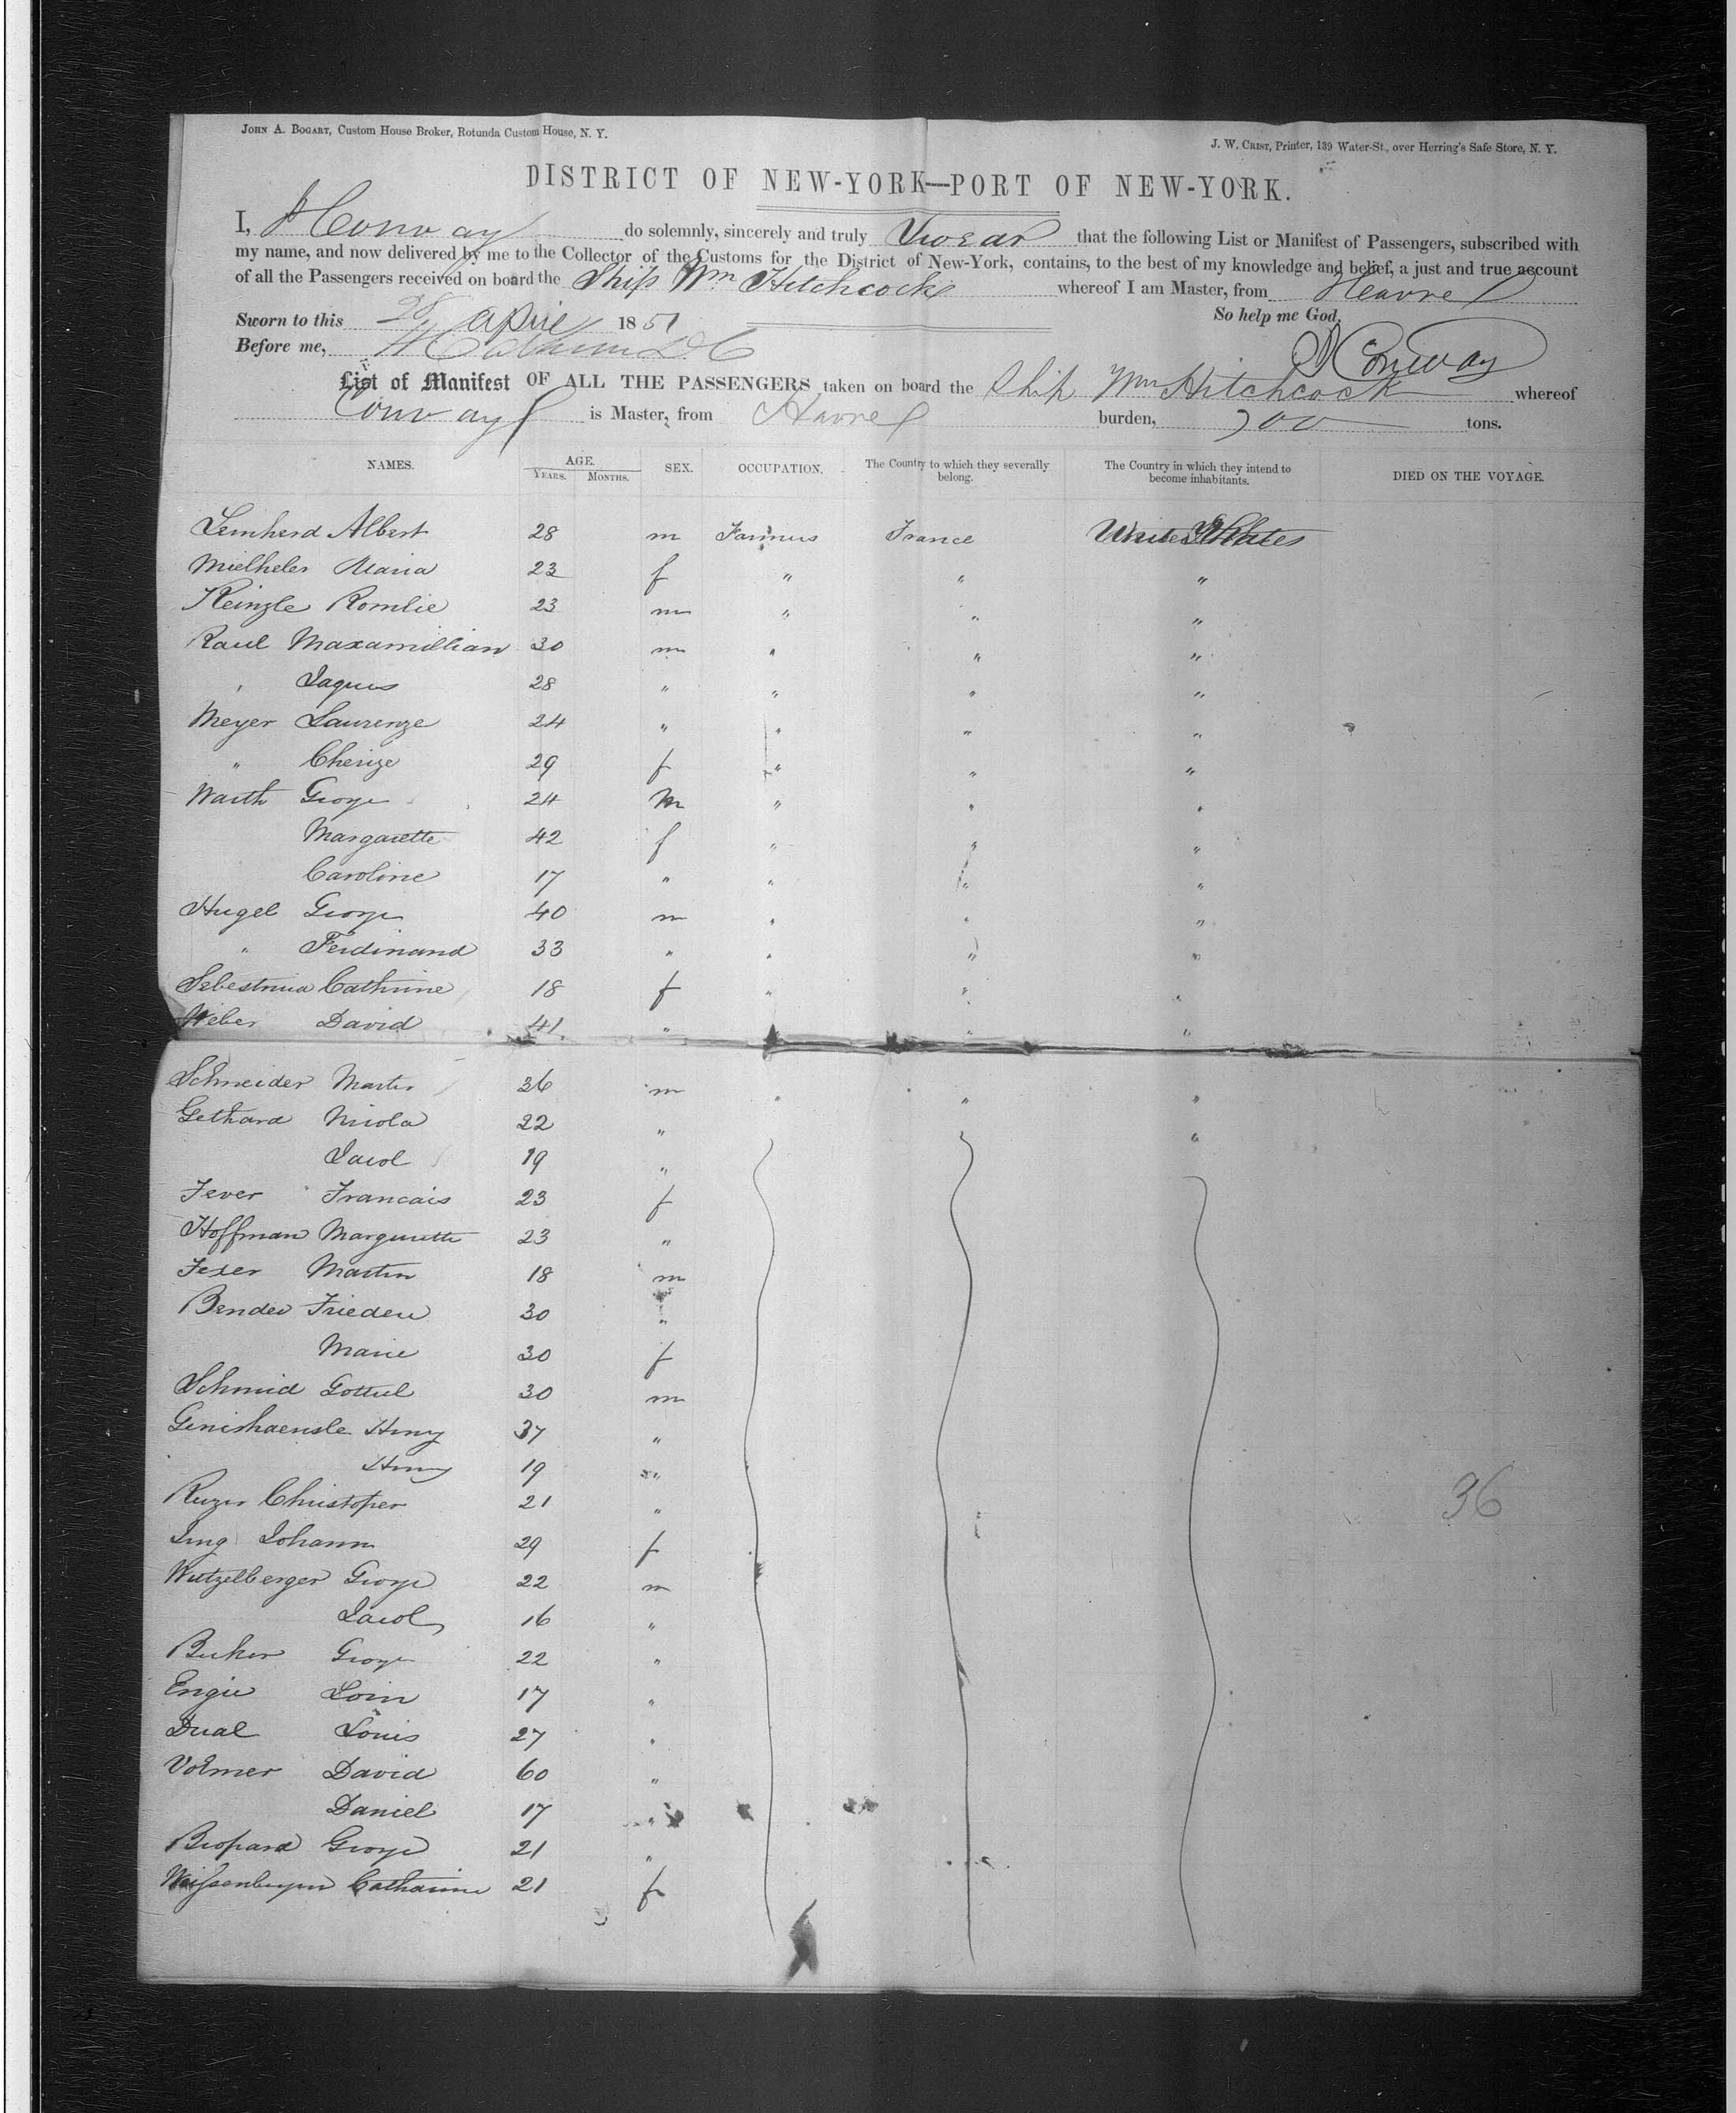 JOHN A. BOGART, Custom House Broker, Rotunda Custom House, N. Y.
J. W. CRIST, Printer, 139 Water-St., over Herring's Safe Store, N. Y.
DISTRICT OF NEW-YORK—PORT OF NEW-YORK.
I, Conway do solemnly, sincerely and truly Swear that the following List or Manifest of Passengers, subscribed with
my name, and now delivered by me to the Collector of the Customs for the District of New-York, contains, to the best of my knowledge and belief, a just and true account
of all the Passengers received on board the Ship Wm Hitchcock whereof I am Master, from Havre
So help me God.
Sworn to this 28 April 1851
Before me,
Conway
List of Manifest OF ALL THE PASSENGERS taken on board the Ship Wm Hitchcock whereof
Conway is Master, from Havre burden, 700 tons.
NAMES. AGE. SEX. OCCUPATION. The Country to which they severally belong. The Country in which they intend to become inhabitants. DIED ON THE VOYAGE.
YEARS. MONTHS.
Lernherd Albert 28 m Farmers France United States
Mielheler Maria 23 f " " "
Keinzle Romlie 23 m " " "
Raul Maxamillian 30 m " " "
" Jaques 28 " " " "
Meyer Laurenze 24 " " " "
" Cherize 29 f " " "
Warth George 24 m " " "
Margarette 42 f " " "
Caroline 17 " " " "
Hugel George 40 m " " "
" Ferdinand 33 " " " "
Cathrine 18 f " " "
Weber David 41 " " "
Schneider Martin 36 m " " "
Gethard Nicola 22 " "
Jacob 19 "
Fever Francais 23 f
Hoffman Margurette 23 "
Fexer Martin 18 m
Bender Frieden 30 "
Marie 30 f
Schmid Gottlieb 30 m
Henry 37 "
Henry 19 "
Christoper 21 "
Jung Johann 29 f
Wutzelberger George 22 m
Jacob 16 "
George 22 "
Engie 17 "
Dual Louis 27 "
Volmer David 60 "
Daniel 17 "
George 21 "
Catharine 21 f
36